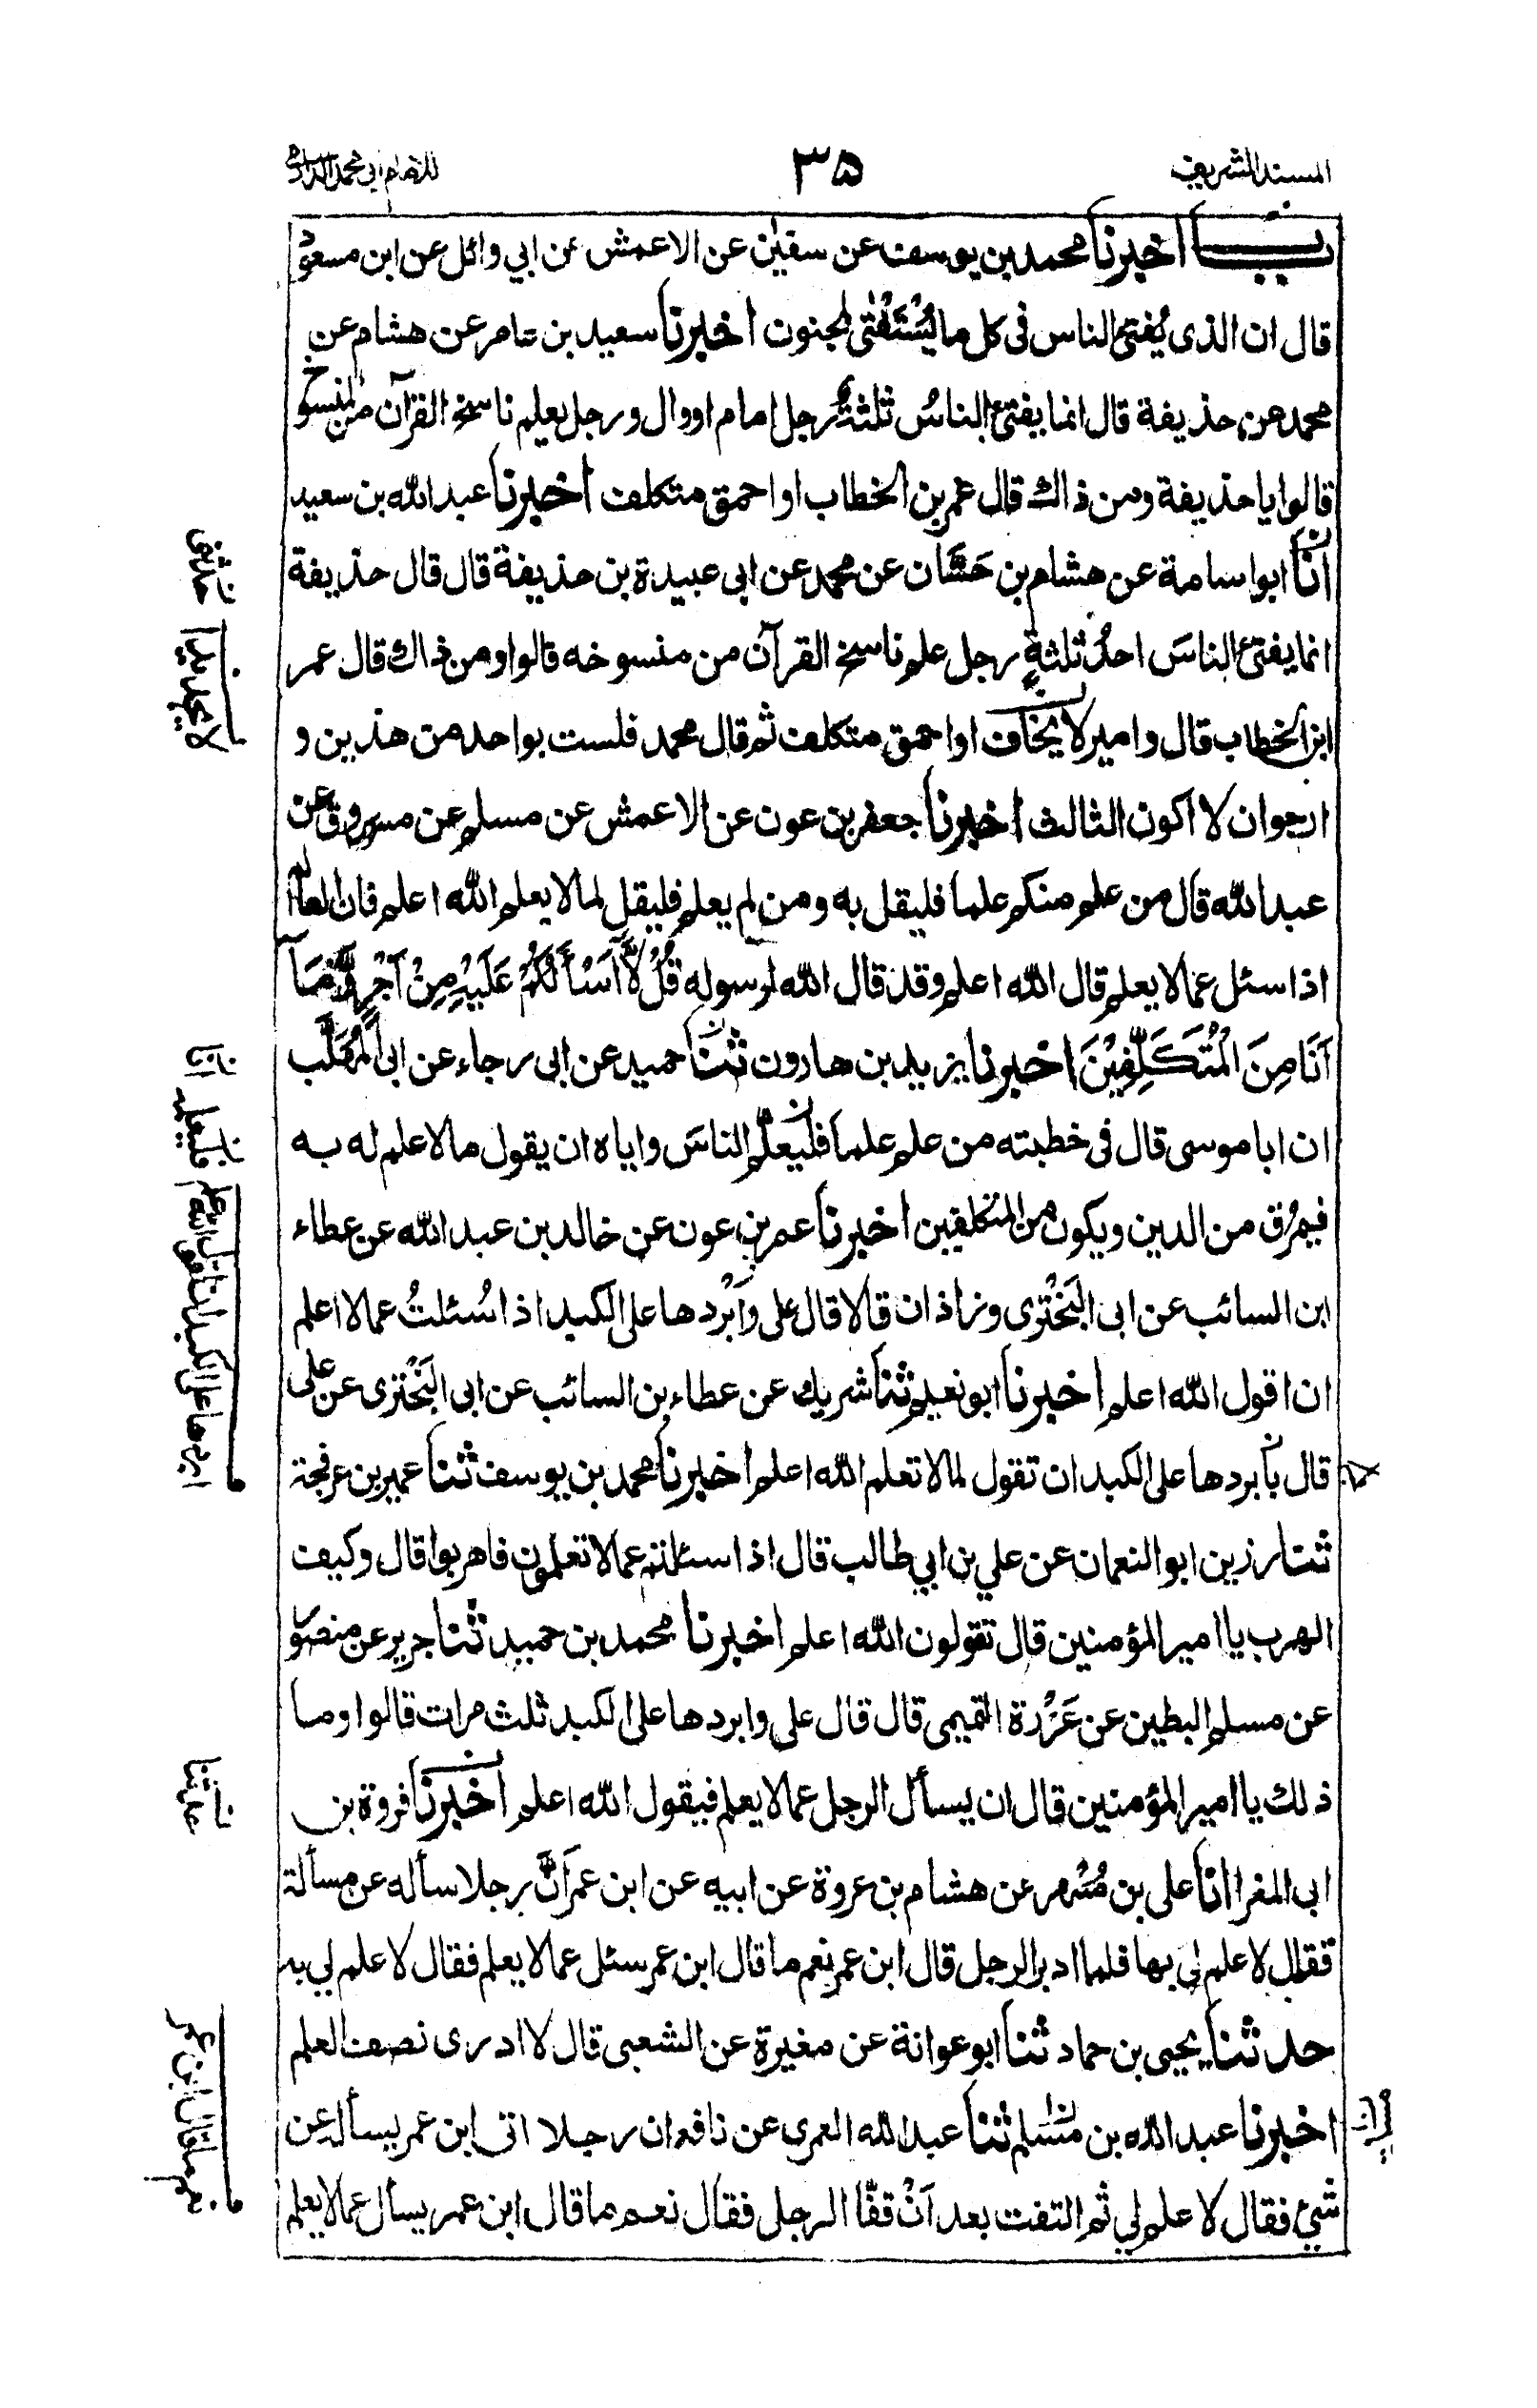 المسند الشريف
٣٥
للامام ابي محمد الدارمي
باب اخبرنا محمد بن يوسف عن سفيٰن عن الاعمش عن ابي وائل عن ابن مسعود
قال ان الذى يُفتى الناس فى كل ما يُسْتَفْتٰى لمجنون اخبرنا سعيد بن عامر عن هشام عن
محمد عن حذيفة قال انما يفتى الناسُ ثلثةٌ رجل امام او وال ورجل يعلم ناسخ القرآن من المنسوخ
قالوا يا حذيفة ومن ذاك قال عمر بن الخطاب او احمق متكلف اخبرنا عبد الله بن سعيد
انَا ابو اسامة عن هشام بن حَسَّان عن محمد عن ابى عبيدة بن حذيفة قال قال حذيفة
انما يفتى الناسَ احدُ ثلثةٍ رجل علم ناسخ القرآن من منسوخه قالوا ومن ذاك قال عمر
ابن الخطاب قال وامير لا يخاف او احمق متكلف ثم قال محمد فلست بواحد من هذين و
ارجوان لا اكون الثالث اخبرنا جعفر بن عون عن الاعمش عن مسلم عن مسروق عن
عبد الله قال من علم منكم علما فليقل به ومن لم يعلم فليقل لما لا يعلم الله اعلم فان العالم
اذا سئل عما لا يعلم قال الله اعلم وقد قال الله لرسوله قُلْ لَّآ اَسْأَلُكُمْ عَلَيْهِ مِنْ اَجْرٍ وَّمَآ
اَنَا مِنَ الْمُتَكَلِّفِيْنَ اخبرنا يزيد بن هارون ثنا حميد عن ابى رجاء عن ابى المُهَلَّب
ان ابا موسى قال فى خطبته من علم علما فليُعلّم الناسَ واياه ان يقول ما لا علم له به
فيمرُق من الدين ويكون من المتكلفين اخبرنا عمر بن عون عن خالد بن عبد الله عن عطاء
ابن السائب عن ابى البَخْتَرى وزاذان قالا قال على وَاَبْردها على الكبد اذا سُئلتُ عما لا اعلم
ان اقول الله اعلم اخبرنا ابو نعيم ثنا شريك عن عطاء بن السائب عن ابى البَخْتَرى عن على
قال يا بردها على الكبد ان تقول لما لا تعلم الله اعلم اخبرنا محمد بن يوسف ثنا عمير بن عرفجة
ثنا رزين ابو النعمان عن علي بن ابي طالب قال اذا سئلتم عما لا تعلمون فاهربوا قال وكيف
الهرب يا امير المؤمنين قال تقولون الله اعلم اخبرنا محمد بن حميد ثنا جرير عن منصور
عن مسلم البطين عن عَزْرة التميمى قال قال على وابردها على الكبد ثلث مرات قالوا وما
ذلك يا امير المؤمنين قال ان يسأل الرجل عما لا يعلم فيقول الله اعلم اخبرنا فروة بن
ابى المغرا انا على بن مُسْهر عن هشام بن عروة عن ابيه عن ابن عمر اَنَّ رجلا سأله عن مسألة
فقال لا علم لى بها فلما ادبر الرجل قال ابن عمر نعم ما قال ابن عمر سئل عما لا يعلم فقال لا علم لي به
حدثنا يحيى بن حماد ثنا ابو عوانة عن مغيرة عن الشعبى قال لا ادرى نصف العلم
اخبرنا عبد الله بن مَسْلم ثنا عبد الله العمرى عن نافع ان رجلا اتى ابن عمر يسأله عن
شئ فقال لا علم لي ثم التفت بعد اَنْ قفّا الرجل فقال نعم ما قال ابن عمر يسأل عما لا يعلم
لا يجد بدا
انا
فليعلمه
حدثنا